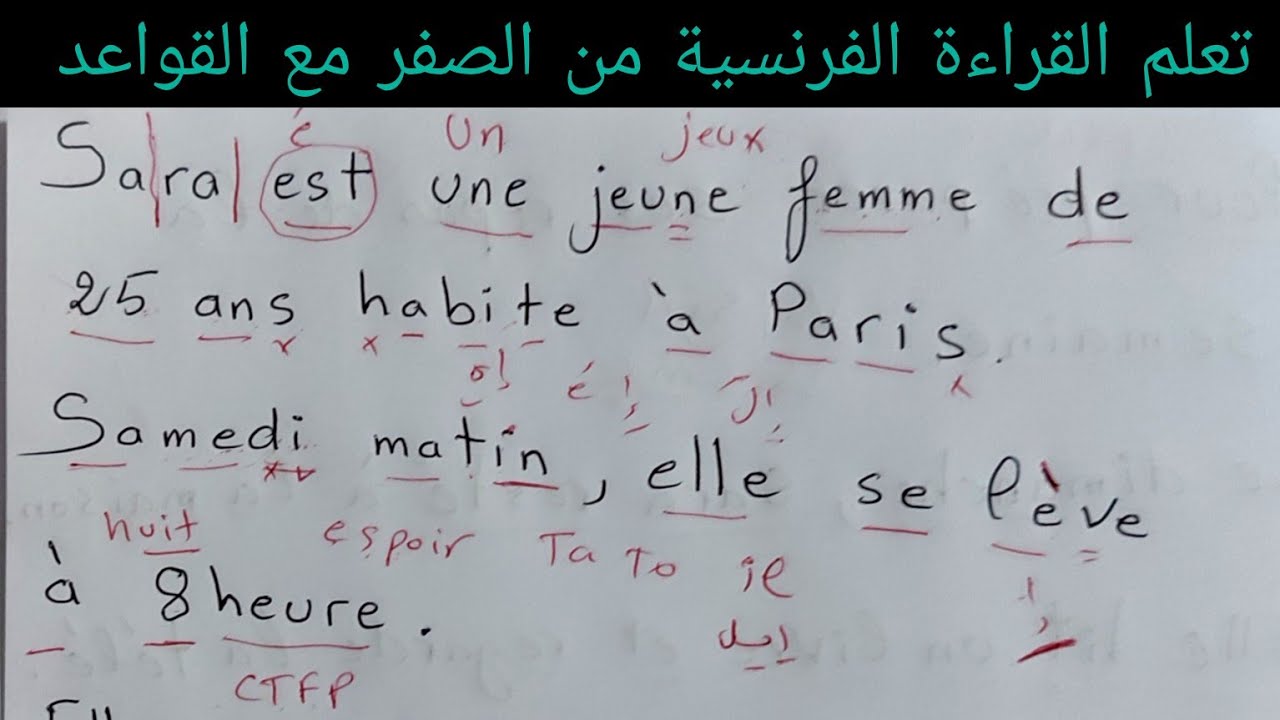 تعلم القراءة الفرنسية من الصفر مع القواعد
é un jeux
Sara est une jeune femme de
25 ans habite à Paris.
é
Samedi matin, elle se lève
huit espoir Ta To il
à 8 heure.
ايل
CTFP